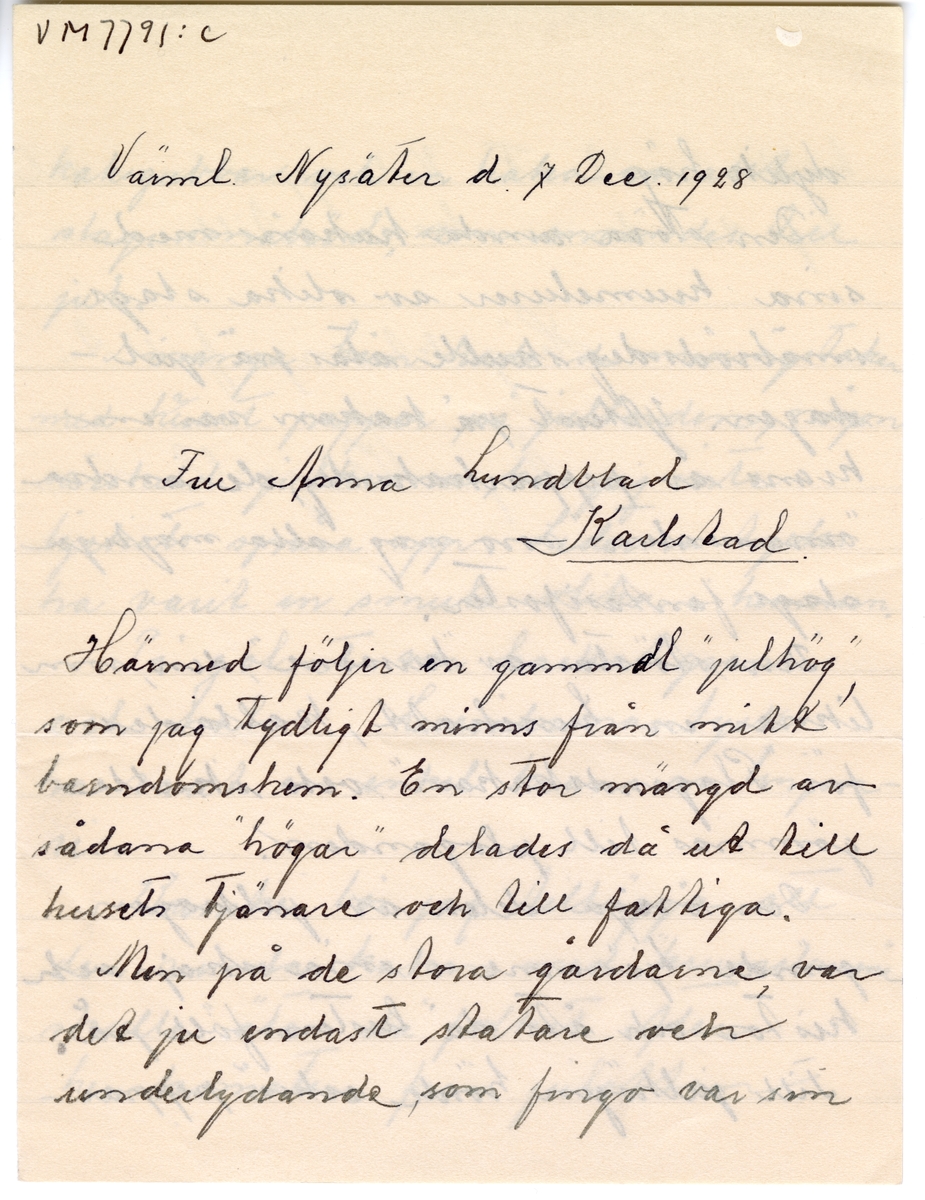 VM7791:c
Värml. Nysäter d. 7 Dec. 1928
Fru Anna Lundblad
Karlstad.
Härmed följer en gammal "julhög",
som jag tydligt minns från mitt
barndomshem. En stor mängd av
sådana "högar" delades då ut till
husets tjänare och till fattiga.
Men på de stora gårdarne, var
det ju endast statare och
underlydande, som fingo var sin